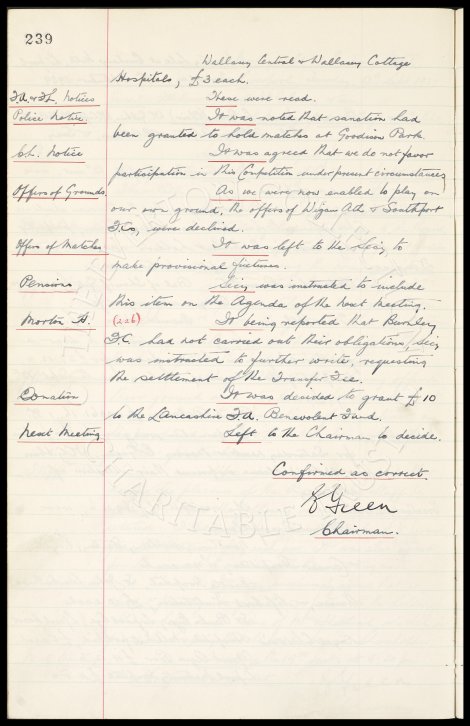 239
Wallasey Central & Wallasey Cottage
Hospitals, £3 each.
F.A. & F.L. Notices These were read.
Police Notice. It was noted that sanction had
been granted to hold matches at Goodison Park.
C.L. Notice It was agreed that we do not favor
participation in this Competition under present circumstances
Offers of Grounds. As we were now enabled to play on
our own ground, the offers of Wigan Ath & Southport
F.Cs, were declined.
Offers of Matches It was left to the Secy, to
make provisional fixtures.
Pensions Secy was instructed to include
this item on the Agenda of the next meeting.
Morton H. (226) It being reported that Burnley
F.C. had not carried out their obligations, Secy
was instructed to further write, requesting
the settlement of the Transfer Fee.
Donation It was decided to grant £10
to the Lancashire F.A. Benevolent Fund.
Next Meeting Left to the Chairman to decide.
Confirmed as correct.
Green
Chairman.
CHARITABLE